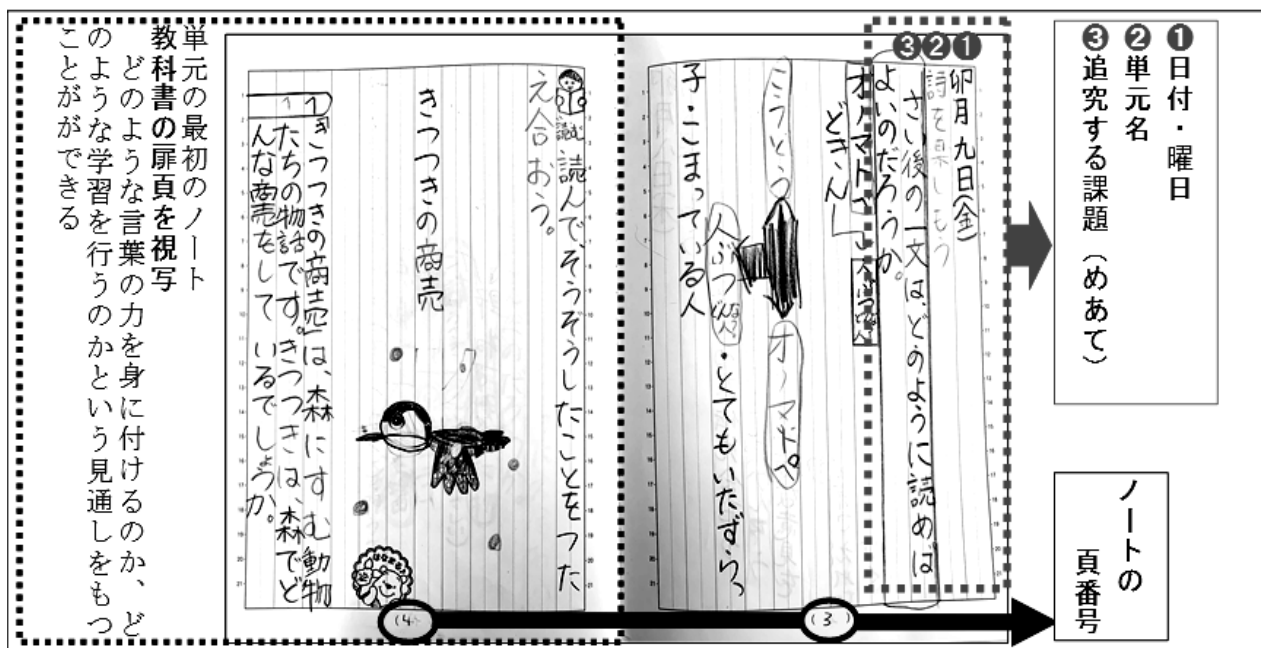 ❶日付・曜日
❷単元名
❸追究する課題（めあて）
ノートの
頁番号
❶
❷
❸
卯月 九日(金)
詩を楽しもう
さい後の一文は、どのように読めば
よいのだろうか。
どきん」
こうとう
オノマトペ
人ぶつ
・とてもいたずらっ
子・こまっている人
(3)
読む
読んでそうぞうしたことをつた
え合おう。
きつつきの商売
「きつつきの商売」は、森にすむ動物
たちの物話です。きつつきは、森でど
んな商売をして いるでしょうか。
(4)
単元の最初のノート
教科書の扉頁を視写
どのような言葉の力を身に付けるのか、ど
のような学習を行うのかという見通しをもつ
ことがができる